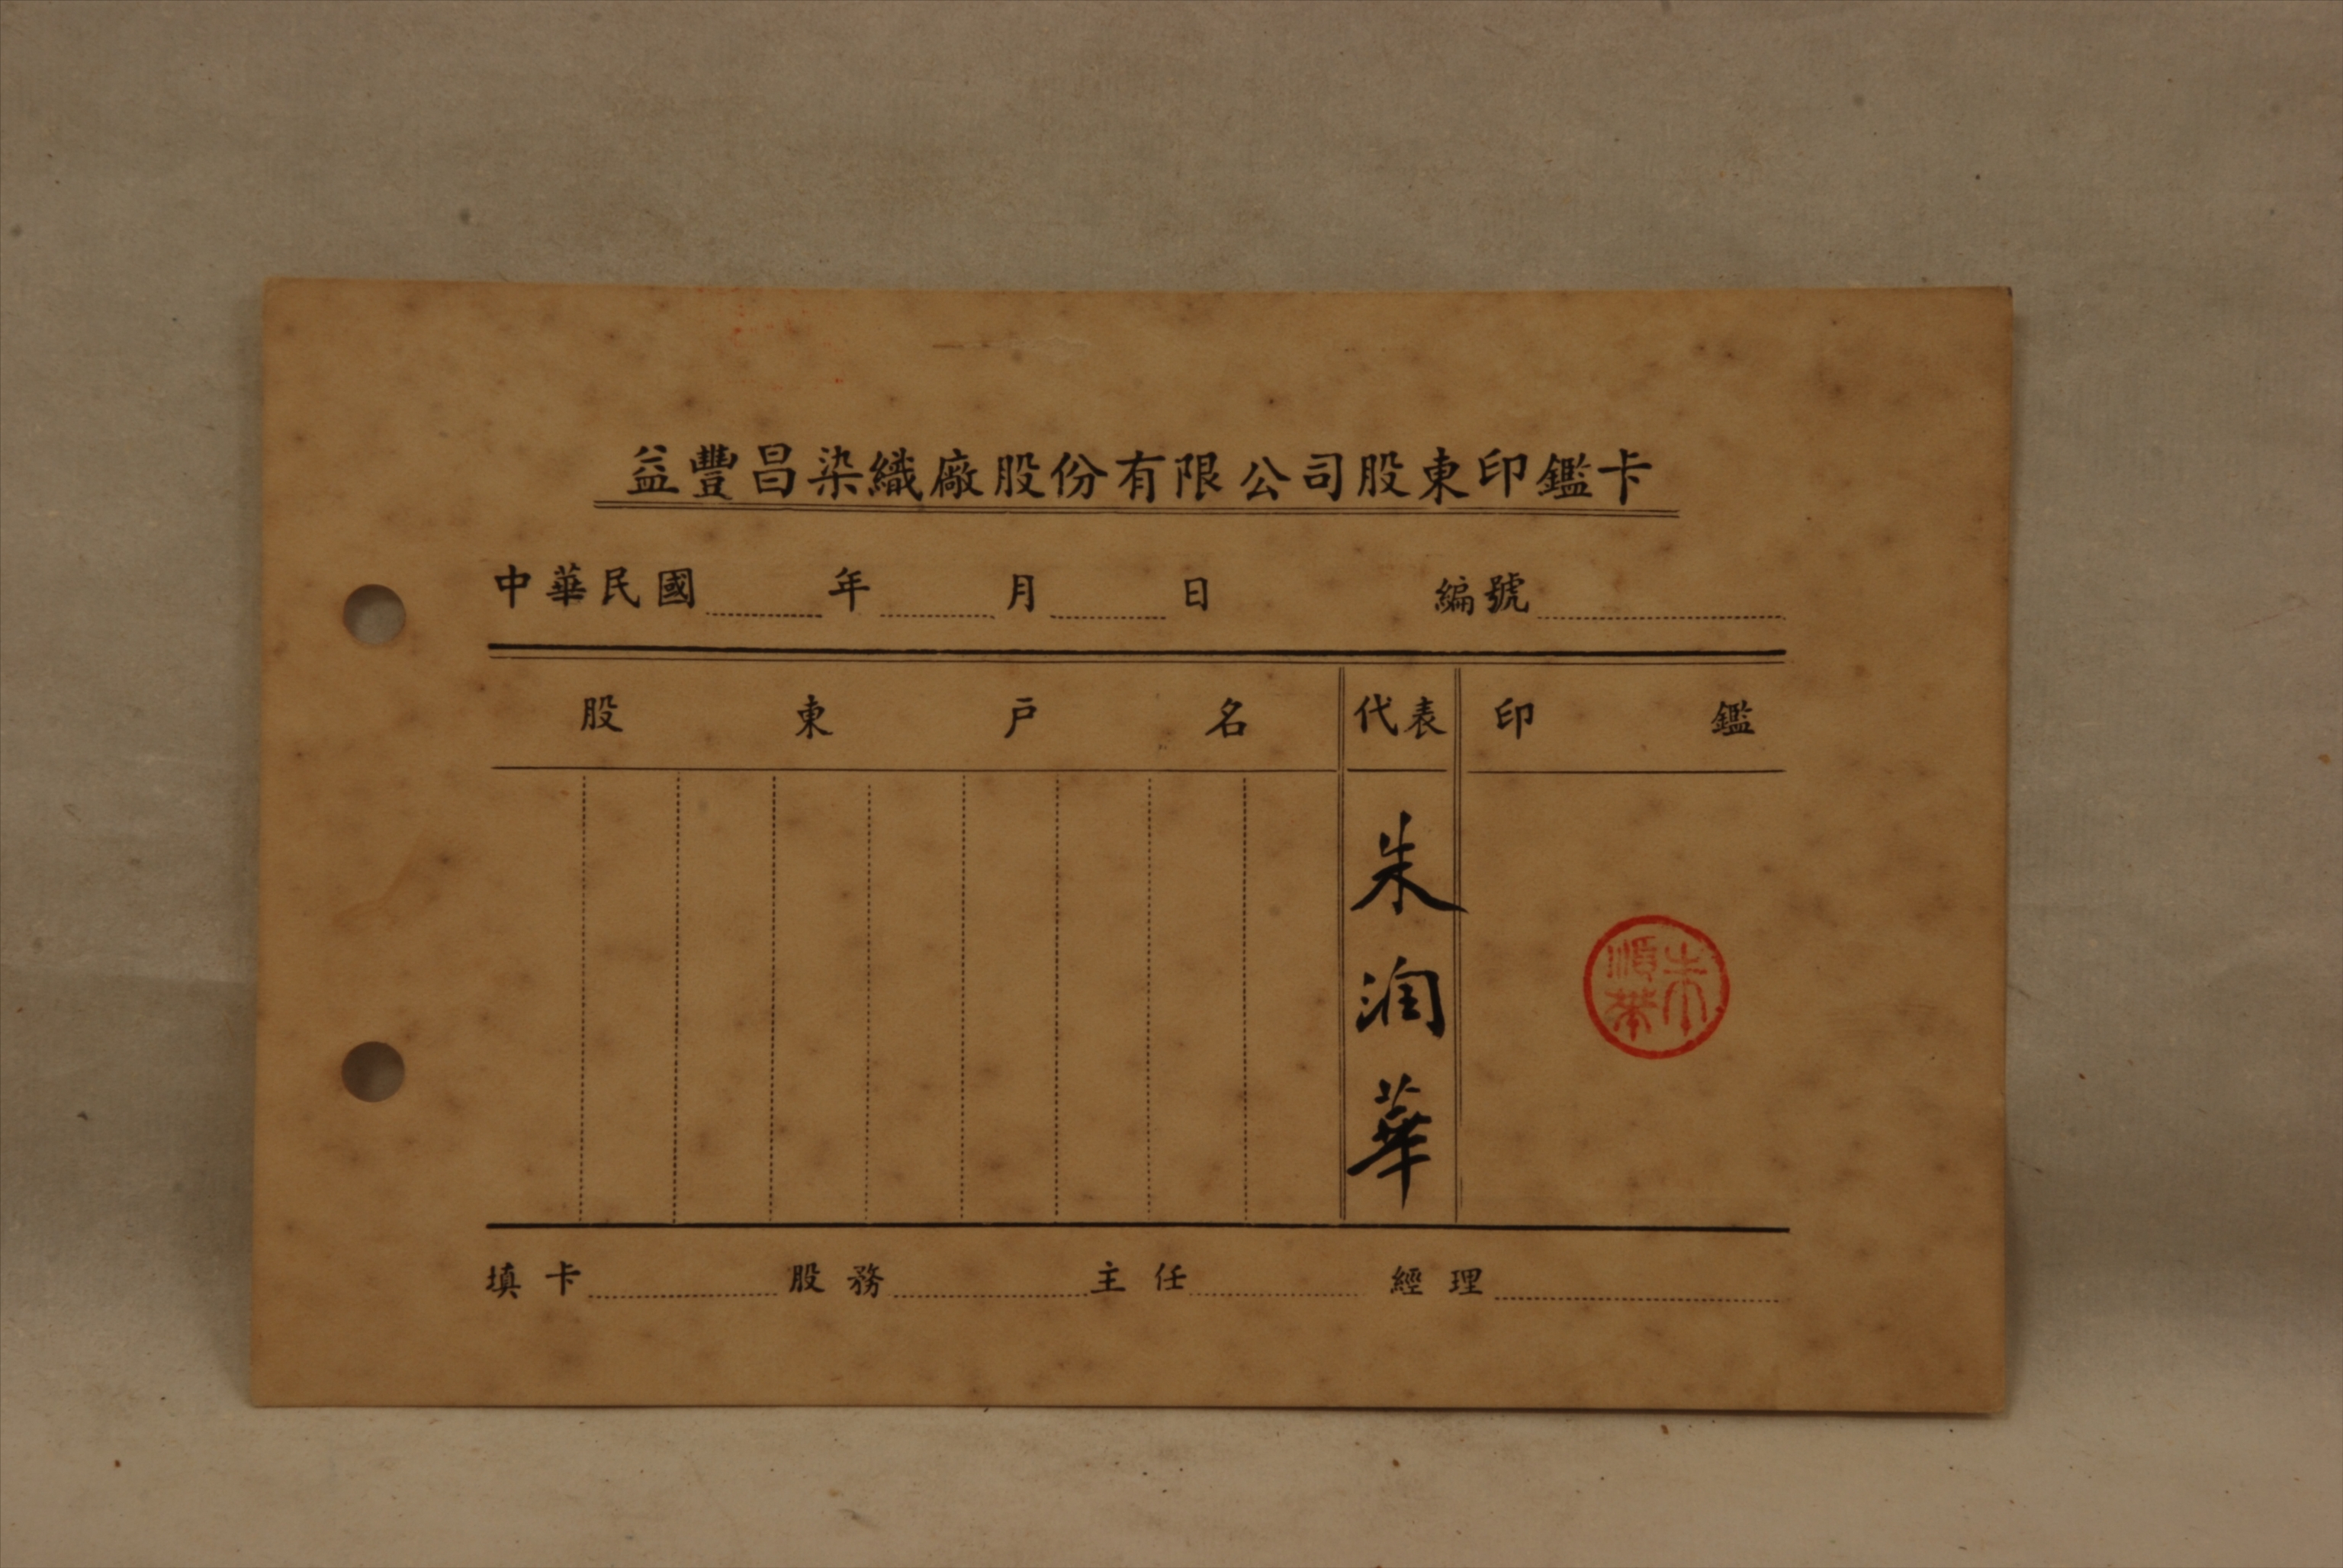 益豐昌染織廠股份有限公司股東印鑑卡
中華民國 年 月 日 編號
股東戶名 代表 印鑑
朱润華
朱順華
填卡 股務 主任 經理